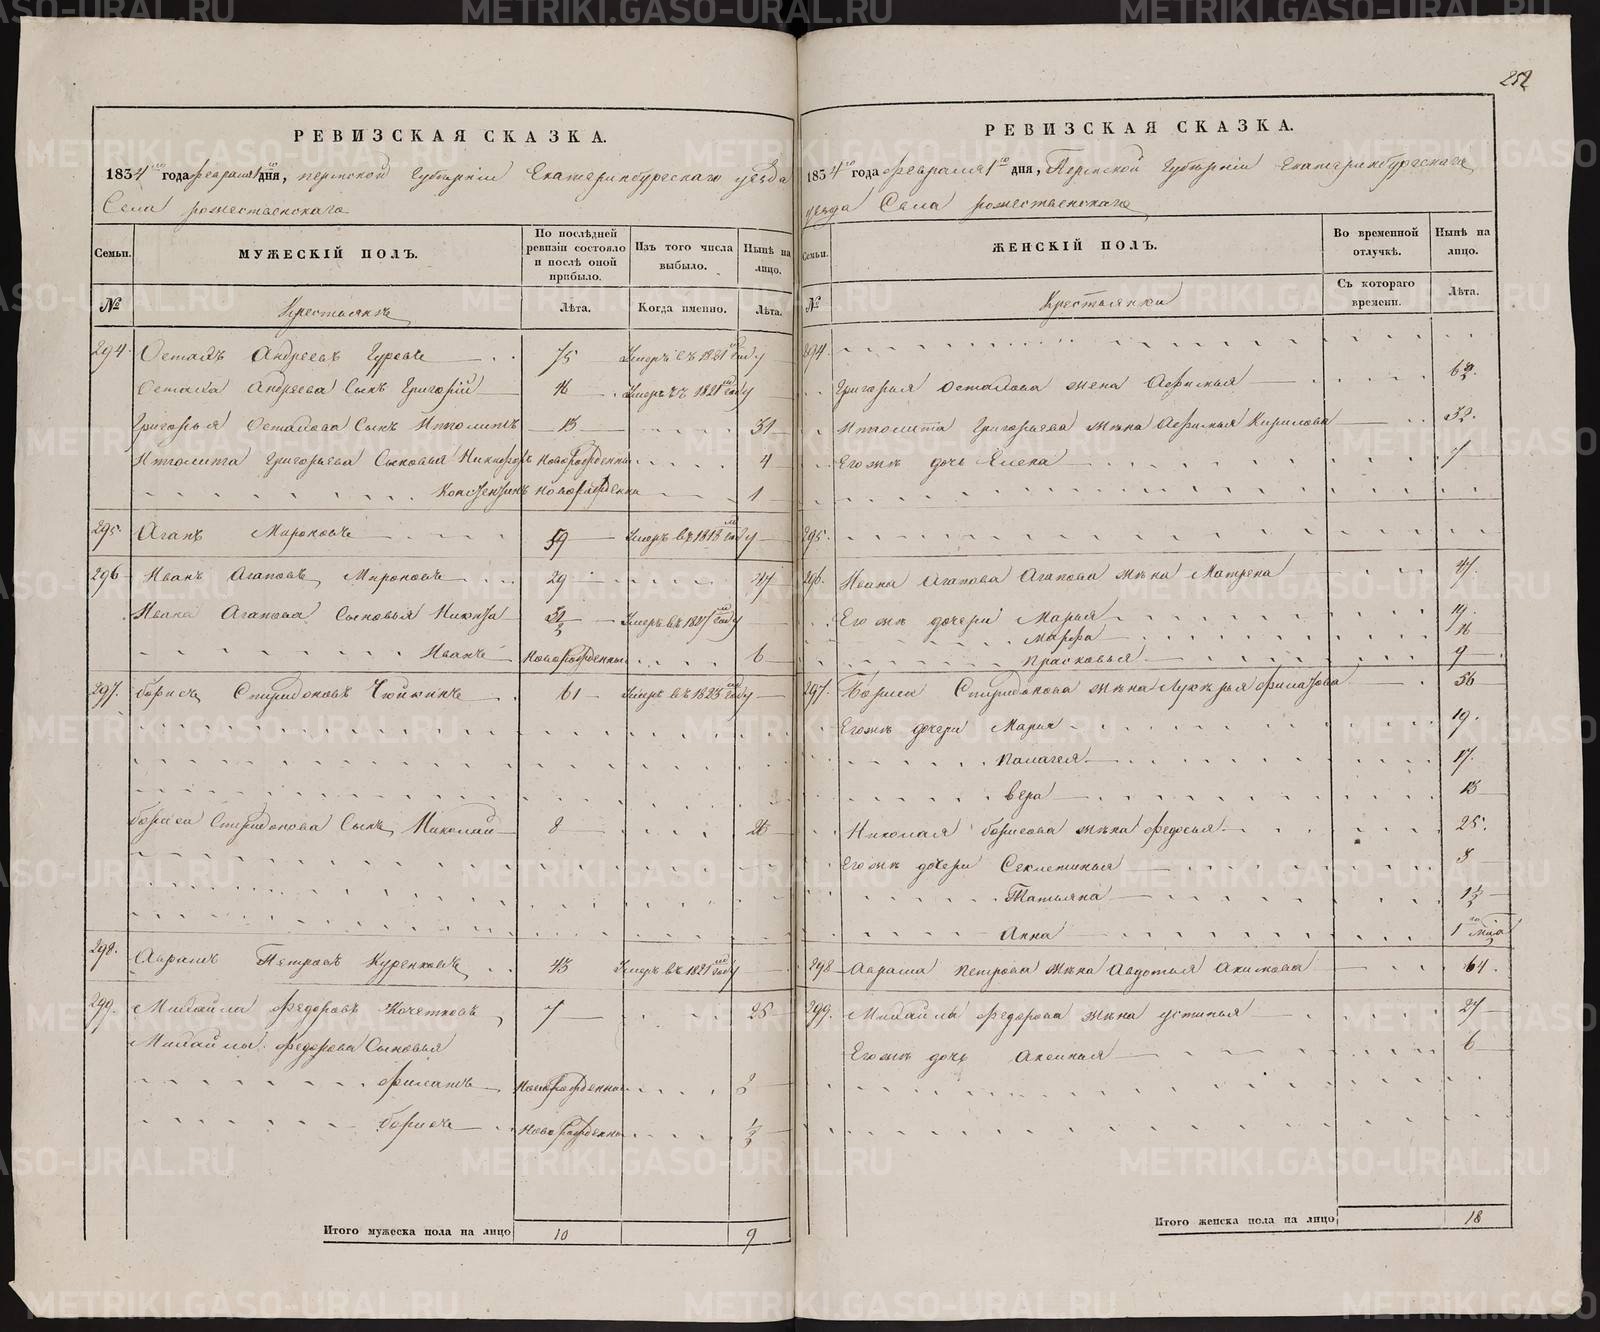 252
РЕВИЗСКАЯ СКАЗКА.
1834 го года февраля 1 го дня, пермской Губерніи Екатеринбургскаго уезда
Села рожественскаго
Семьи.
МУЖЕСКІЙ ПОЛЪ.
По послѣдней ревизіи состояло и послѣ оной прибыло.
Изъ того числа выбыло.
Нынѣ на лицо.
№
Крестьянъ
Лѣта.
Когда именно.
Лѣта.
294. Остапъ Андреевъ Гуревъ 75 Умеръ въ 1821 м году
Остапа Андреева Сынъ Григорій 46 Умеръ въ 1821 м году
Григорья Остапова Сынъ Ипполитъ 13 31
Ипполита Григорьева Сыновья Никифоръ новорожденны 4
Констентинъ новорожденна 1
295. Агапъ Мироновъ 59 Умеръ въ 1818 м году
296 Иванъ Агаповъ Мироновъ 29 47
Ивана Агапова Сыновья Никита Умеръ въ 1827 м году
Иванъ Новорожденны 6
297. борисъ Спиридоновъ Чюйкинъ 61 Умеръ въ 1823 м году
бориса Спиридонова Сынъ Николай 8 26
298. Аврамъ Петровъ Куренковъ 43 Умеръ въ 1821 м году
299. Михайла Федоровъ Кочетковъ 7 25
Михайлы Федорова Сыновья
Филатъ Новорожденны 3
борисъ Новорожденны ½
Итого мужеска пола на лицо 10 9
РЕВИЗСКАЯ СКАЗКА.
1834 го года февраля 1 го дня, Пермской Губерніи Екатеринбургскаго
уезда Села рожественскаго
Семьи.
ЖЕНСКІЙ ПОЛЪ.
Во временной отлучкѣ.
Нынѣ на лицо.
№
Крестьянки
Съ котораго времени.
Лѣта.
294.
Григорья Остапова жена Афимья 63.
Ипполита Григорьева жѣна Афимья Кирилова 32.
Егожъ дочь Елена 7
295.
296. Ивана Агапова Агапова жѣна Матрена 47.
Егожъ дочери Марья 19.
Марфа 16
Прасковья 9
297. Бориса Спиридонова жѣна Лукѣрья Филатова 56
Егожъ дочери Мария 19.
Палагея 17.
Вера 13
Николая борисова жѣна Федосья 25.
Егожъ дочери Секлетинья 3
Татьяна 1½
Анна 1 го мая
298 Аврама Петрова жѣна Авдотья Акимова 64.
299. Михайлы Федорова жѣна устинья 27
Егожъ дочь Аксинья 6
Итого женска пола на лицо 18
METRIKI.GASO-URAL.RU